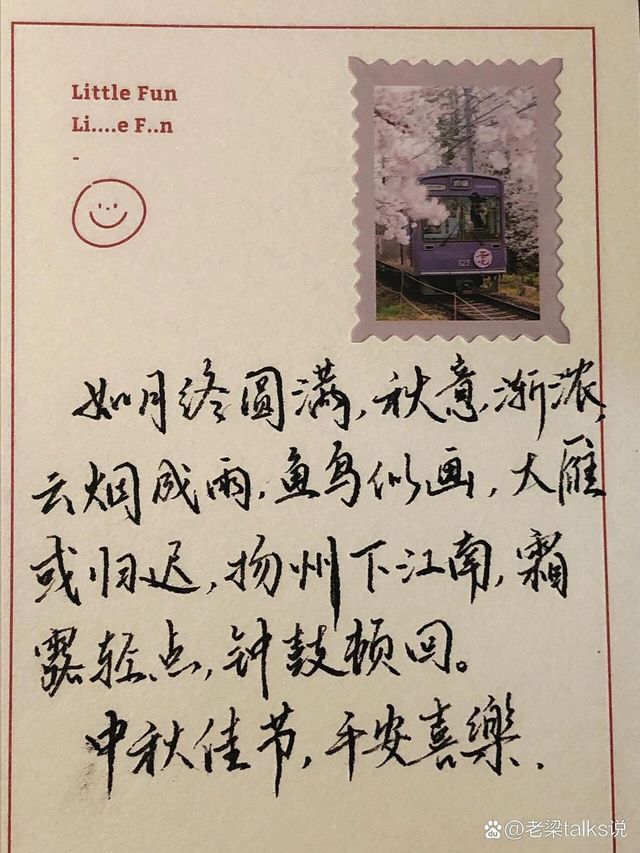 Little Fun
Li....e F..n
-
如月终圆满,秋意渐浓,
云烟成雨,鱼鸟似画,大雁
或归迟,扬州下江南,霜
露轻点,钟鼓顿回。
中秋佳节,平安喜樂.
@老梁talks说